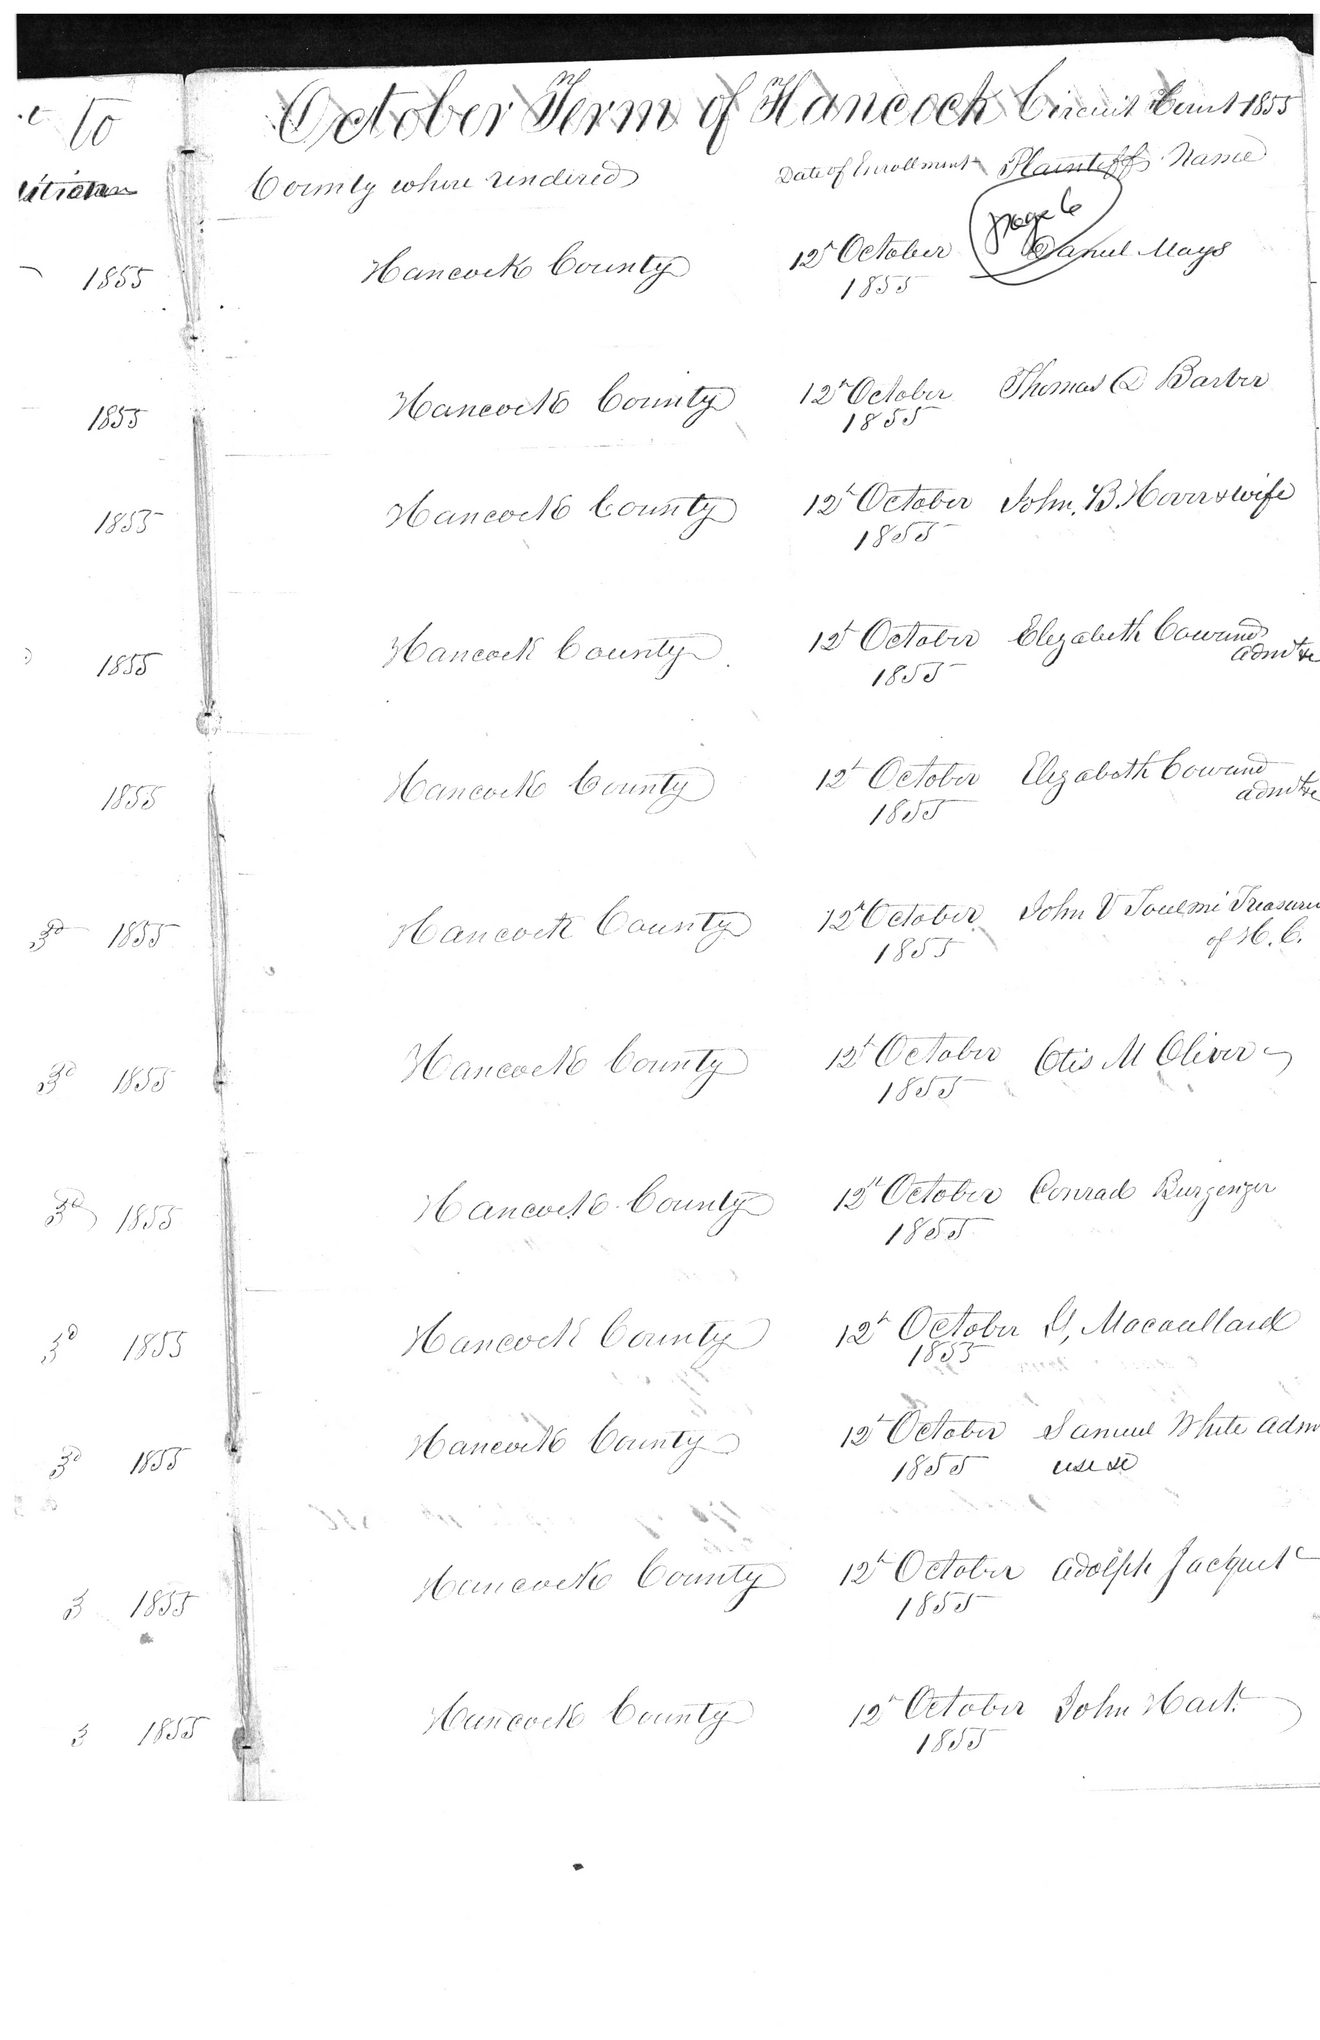 to
October Term of Hancock Circuit Court 1855
County where rendered Date of Enrollment Plaintiff Name
page 6
1855 Hancock County 12t October Daniel Mays
1855
1855 Hancock County 12t October Thomas Q Barber
1855
1855 Hancock County 12t October John. B. & wife
1855
1855 Hancock County 12t October Elizabeth Cowand
admtx
1855
1855 Hancock County 12t October Elizabeth Cowand
admtx
1855
3d 1855 Hancock County 12t October John V Toulmi Treasure
of H. C.
1855
3d 1855 Hancock County 12t October Otis M Oliver
1855
3d 1855 Hancock County 12t October Conrad
1855
3d 1855 Hancock County 12t October
1855
3d 1855 Hancock County 12t October Samuel White adm
1855 use &c
3 1855 Hancock County 12t October Adolph Jacquet
1855
3 1855 Hancock County 12t October John Hart
1855